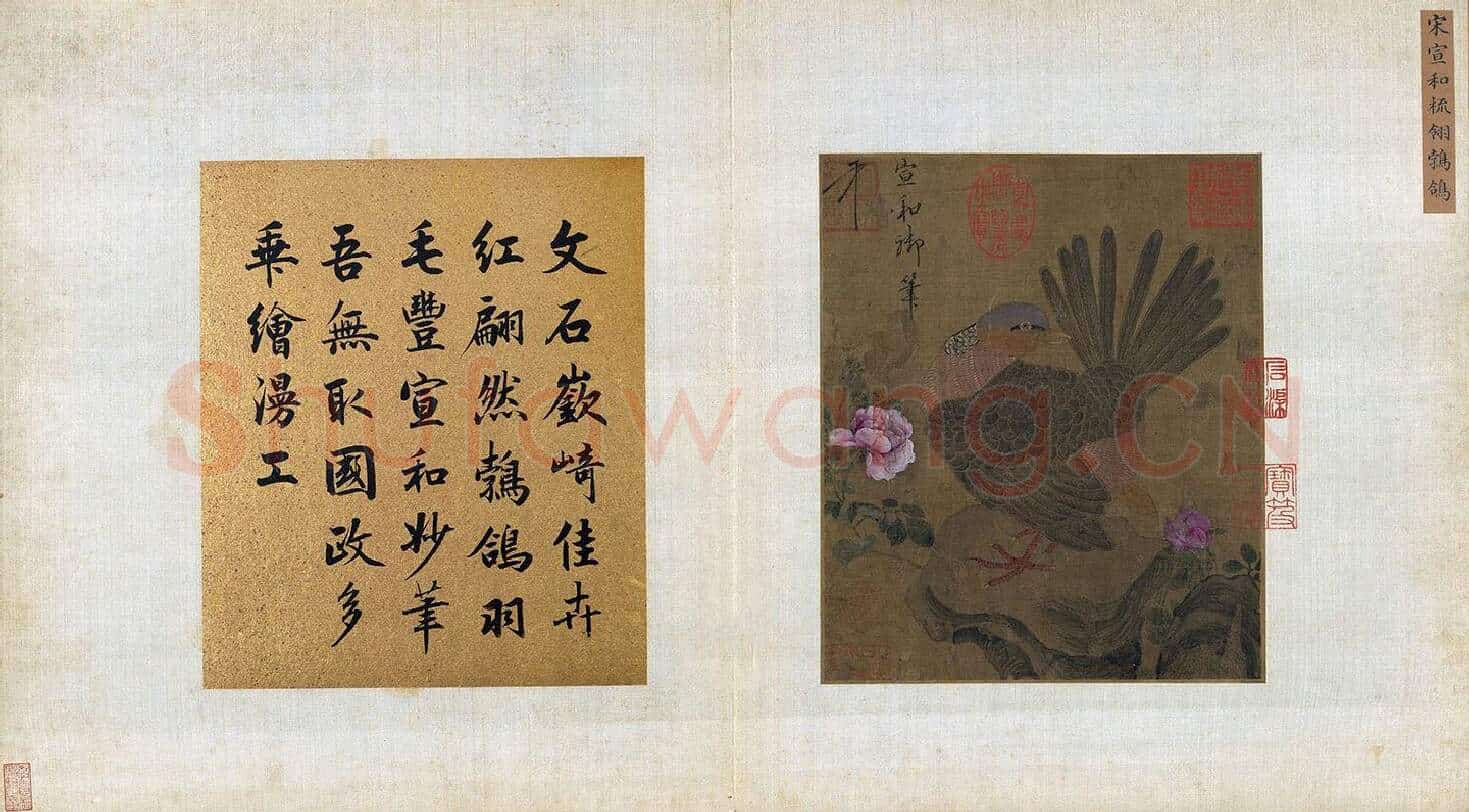 宋宣和梳翎鵓鴿
宣和御筆
文石嶔崎佳卉
紅翩然鵓鴿羽
毛豐宣和妙筆
吾無取國政多
乘繪漫工
Shufawang.CN